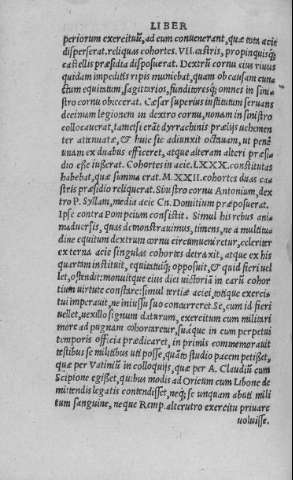 LIBER
periorum exercituũ, ad eum conuenerant, quæ tota acie
disperserat. reliquas cohortes. VII. castris, propinquisq́;
castellis præsidia disposuerat. Dextrũ cornu eius riuus
quidam impeditis ripis muniebat, quam ob causam cun
ctum equitatum, sagitarios, funditoresq́; omnes in sini
stro cornu obiecerat. Cæsar superius institutum seruans
decimam legionem in dextro cornu, nonam in sinistro
collocauerat, tametsi erãt dyrrachinis prælijs uehemen
ter attenuatæ, & huic sic adiunxit octauam, ut pene
unam ex duabus efficeret, atque alteram alteri præsi
dio esse iusserat. Cohortes in acie. LXXX. constitutas
habebat, quæ summa erat. M. XXII. cohortes duas ca
stris præsidio reliquerat. Sinistro cornu Antonium, dex
tro P. Syllam, media acie Cn. Domitium præposuerat.
Ipse contra Pompeium constitit. Simul his rebus ani
maduersis, quas demonstrauimus, timens, ne a multitu
dine equitum dextrum cornu circumueniretur, celeriter
ex tertia acie singulas cohortes detraxit, atque ex his
quartam instituit, equitatuiq́; opposuit, & quid fieri uel
let, ostendit: monuitque eius diei uictoriã in earũ cohor
tium uirtute constare: simul tertiæ aciei, totique exerci
tui imperauit, ne iniussu suo concurreret. Se, cum id fieri
uellet, uexillo signum daturum, exercitum cum militari
more ad pugnam cohortaretur, suaque in eum perpetui
temporis officia prædicaret, in primis commemorauit
testibus se militibus uti posse, quãto studio pacem petisset,
quæ per Vatiniũ in colloquijs, quæ per A. Claudiũ cum
Scipione egisset, quibus modis ad Oricum cum Libone de
mittendis legatis contendisset, neq́; se unquam abuti mili
tum sanguine, neque Remp. alterutro exercitu priuare
uoluisse.